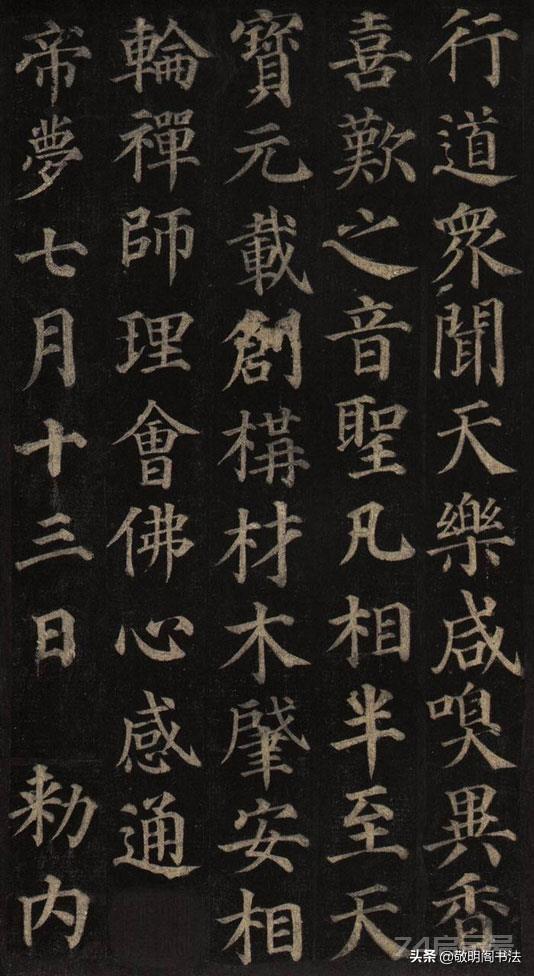 行道衆聞天樂咸嗅異香
喜歎之音聖凡相半至天
寶元載創構材木肇安相
輪禪師理會佛心感通
帝夢七月十三日 勑内
头条 @敬明阁书法